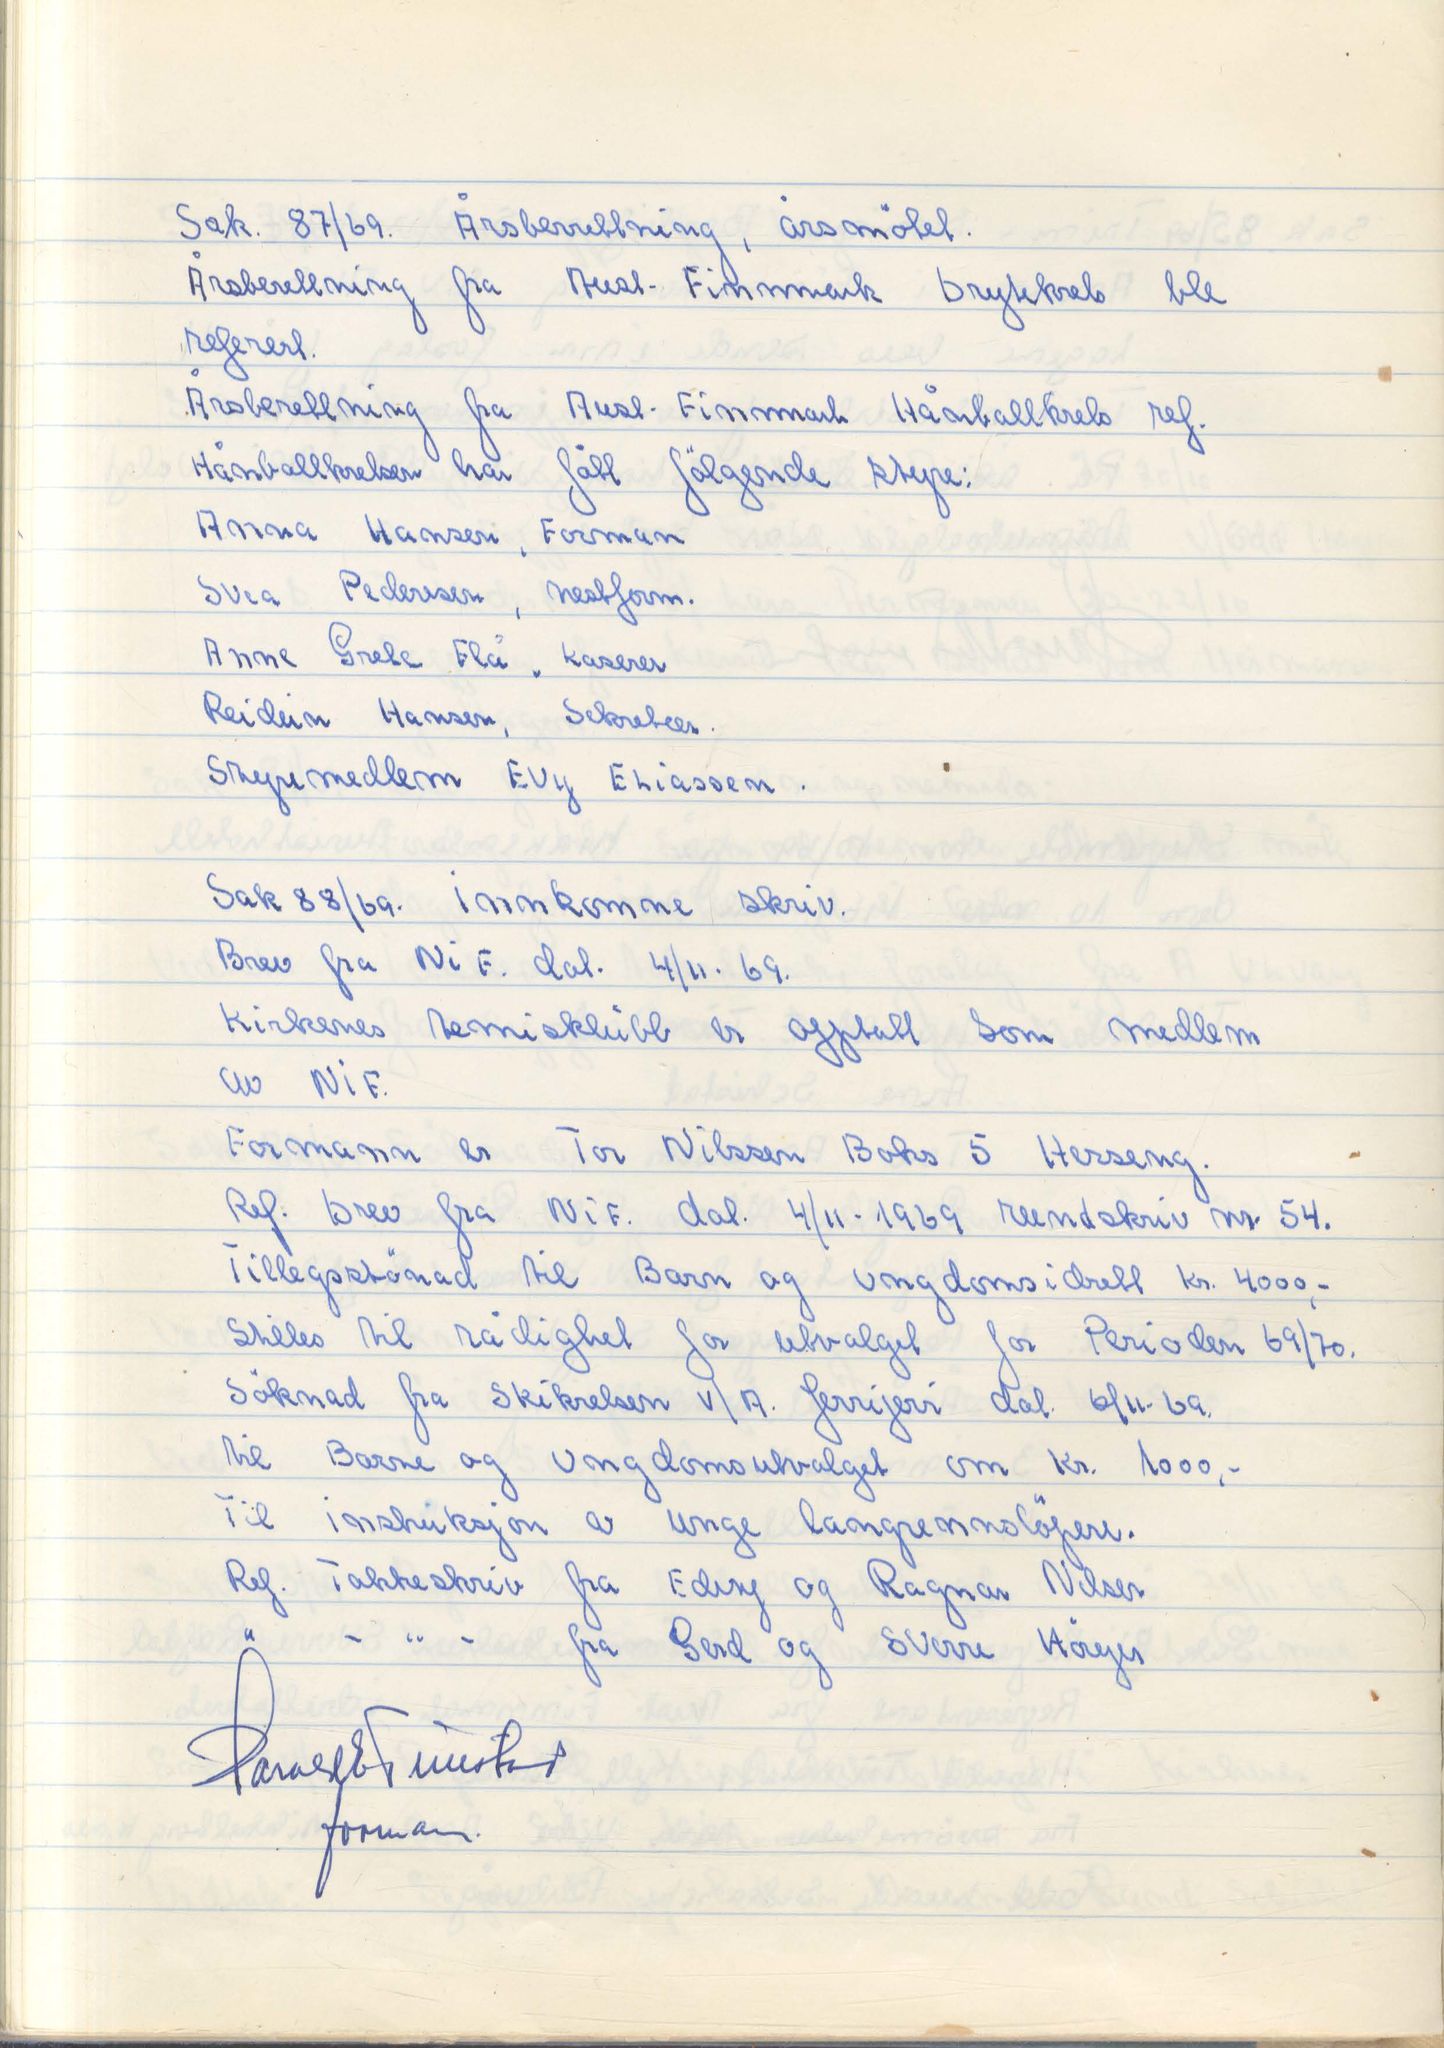 Sak. 87/69. Årsberrettning, årsmötet.
Årsberettning fra Aust-Finnmark brytekrets ble
referert.
Årsberettning fra Aust-Finnmark Hånballkrets ref.
Hånballkretsen har fått fölgende styre:
Anna Hansen, Forman
Svea Pedersen, nestform.
Anne Grete Flå, Kaserer
Reidun Hansen, Sekretær.
Styremedlem Evy Eliassen.
Sak 88/69. innkomne skriv.
Brev fra NiF. dat. 4/11-69.
Kirkenes tennisklubb er opptatt som medlem
av NiF.
Formann er Tor Nilssen Boks 5 Hesseng.
Ref. brev fra NiF. dat. 4/11-1969 rundskriv nr 54.
Tillegsstönad til Barn og ungdomsidrett kr. 4000,-
stilles til rådighet for utvalget for Perioden 69/70.
Söknad fra skikretsen v/A. dat. 6/11-69.
til Barne og Ungdomsutvalget om kr. 1000,-
Til instruksjon av unge langrennslöpere.
Ref. Takkeskriv fra og Ragnar Nilsen
" - " - fra Gerd og Sverre
formann.